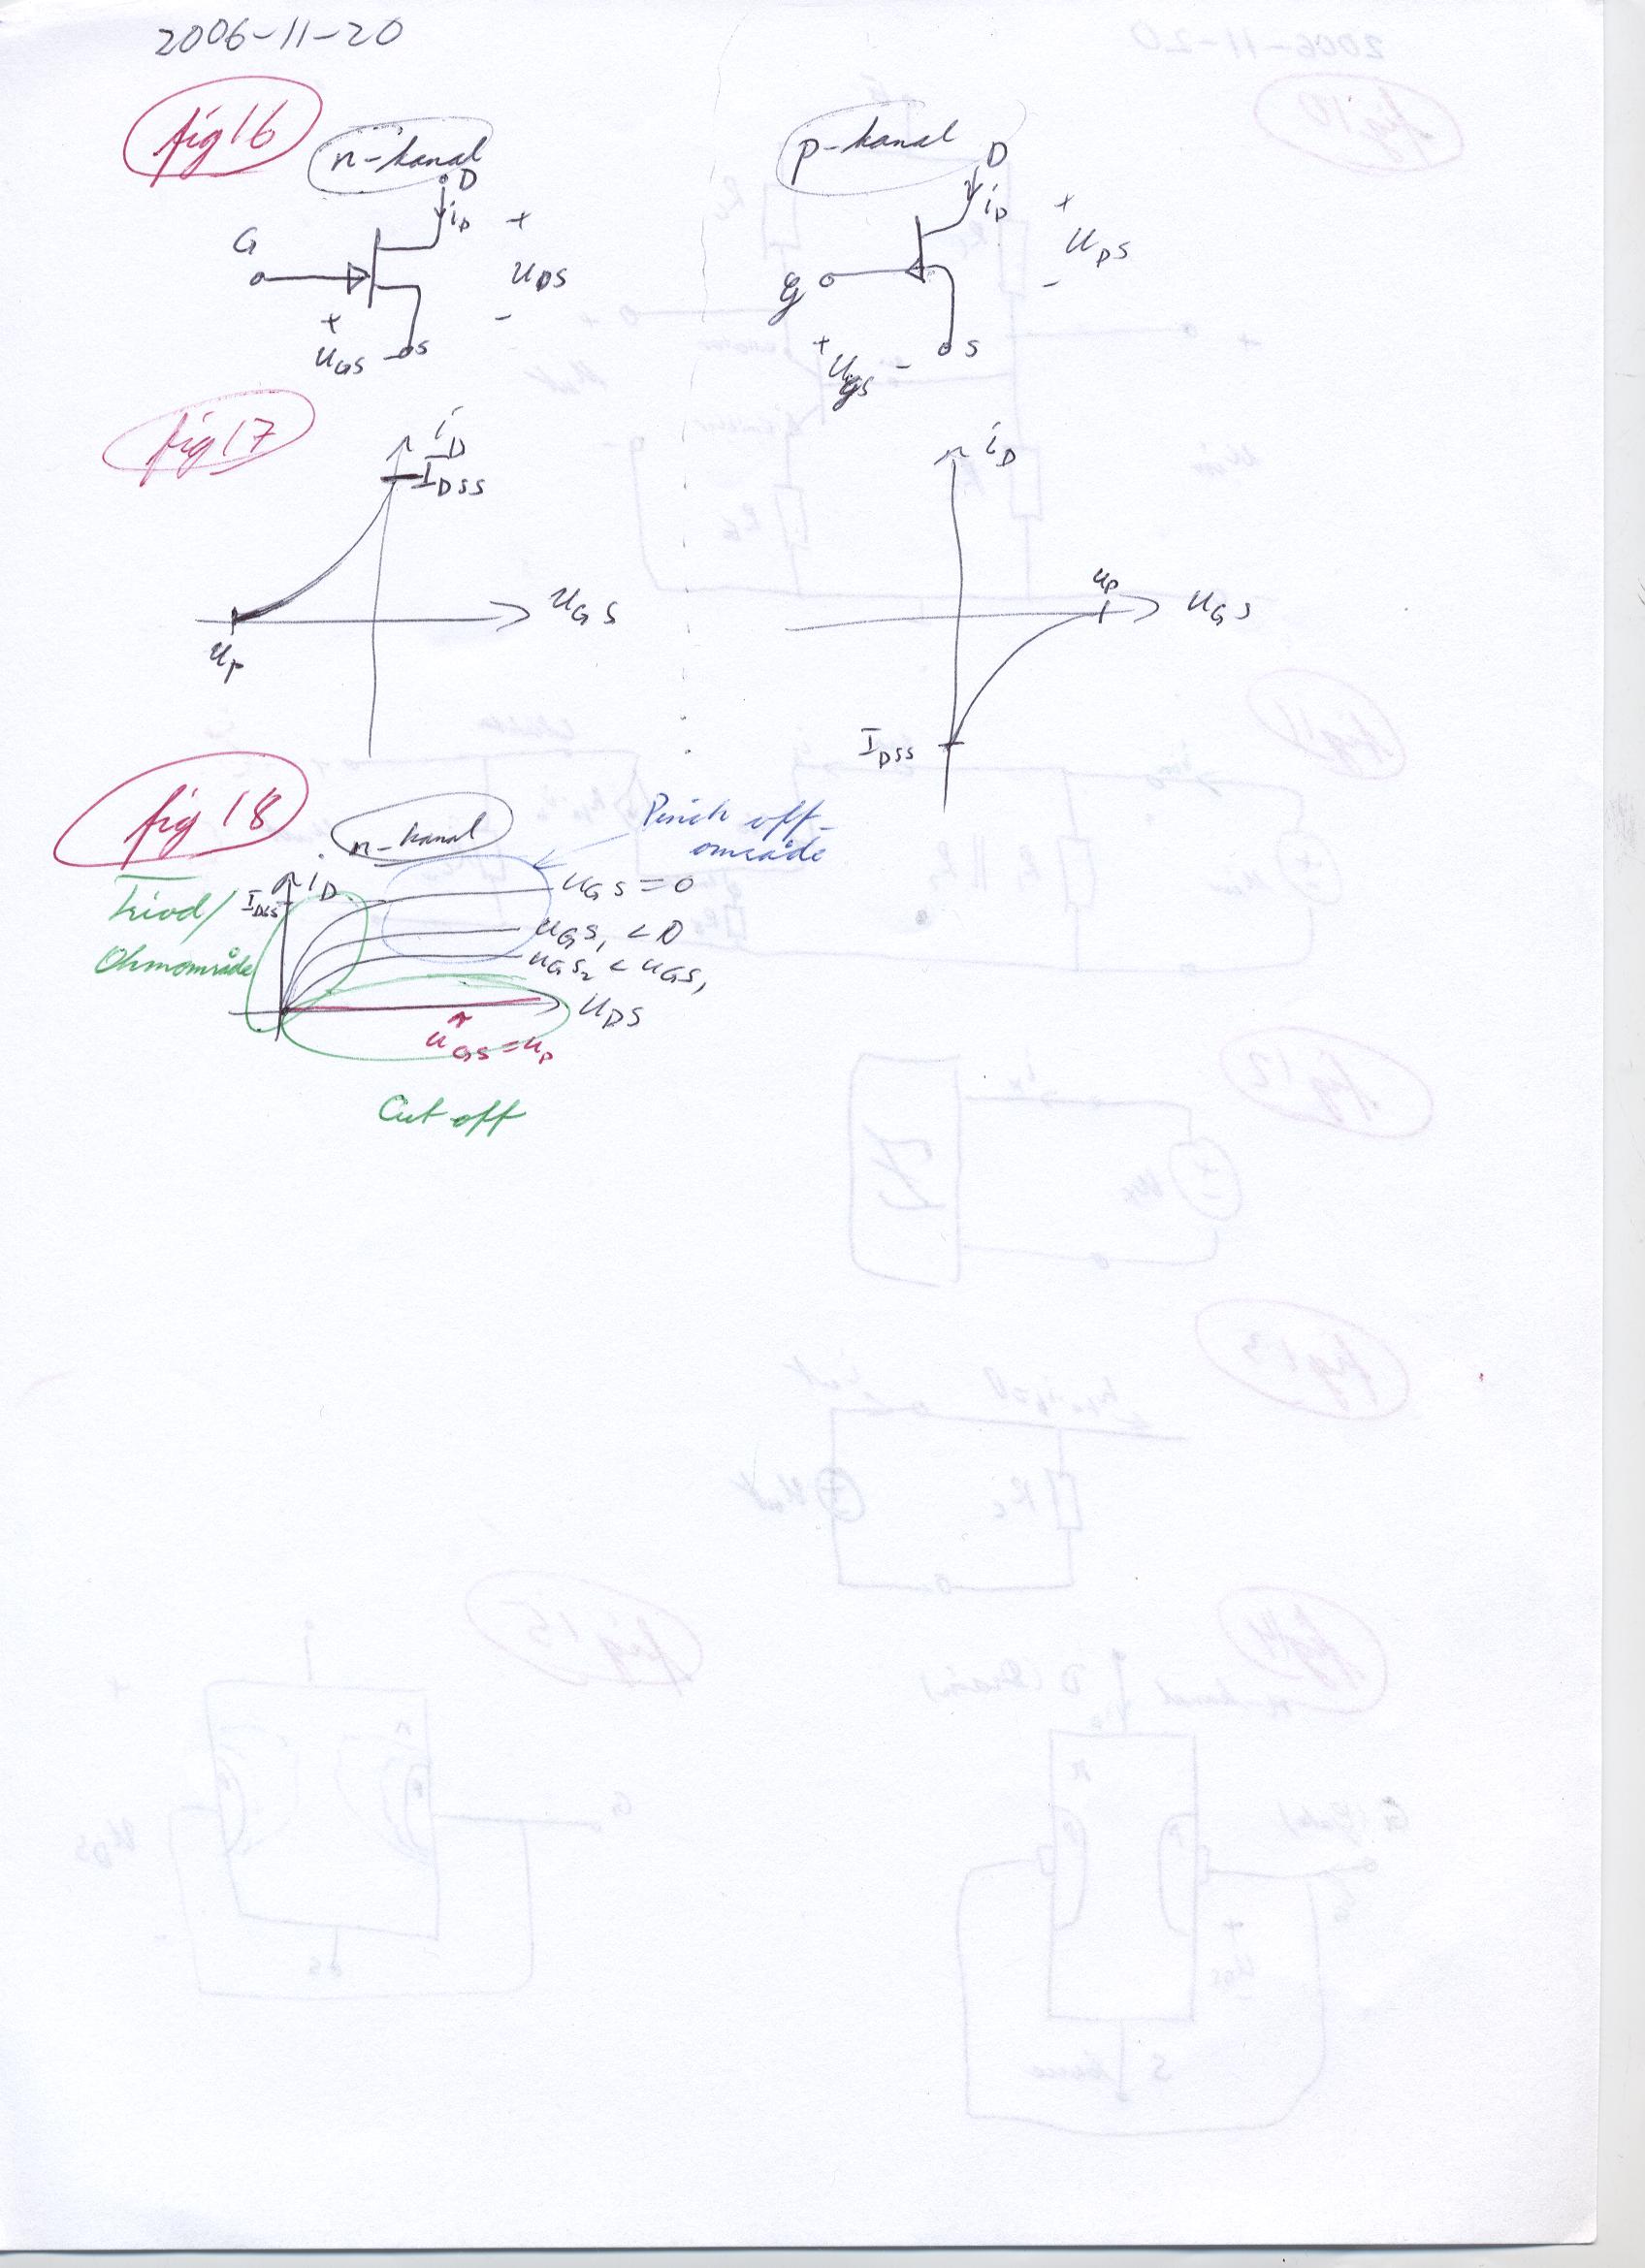 2006-11-20
fig 16
n-kanal
D
iD
+
uDS
-
G
+
uGS
-
S
p-kanal
D
iD
+
uDS
-
g
+
ugs
-
S
fig 17
iD
IDSS
uGS
up
iD
up
uGS
IDSS
fig 18
n-kanal
Pinch off-
område
Triod/
Ohmområde
iD
IDSS
uGS = 0
uGS1 < 0
uGS2 < uGS1
uDS
uGS = up
Cut off